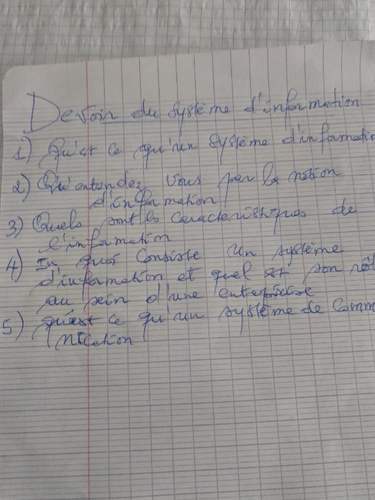 Devoir du système d'information
1) Qu'est ce qu'un système d'informatio
2) Qu'entendez vous par la notion
d'information
3) Quels sont les caractéristiques de
l'information
4) En quoi consiste un système
d'information et quel est son rôl
au sein d'une entreprise
5) qu'est ce qu'un système de comm
nication